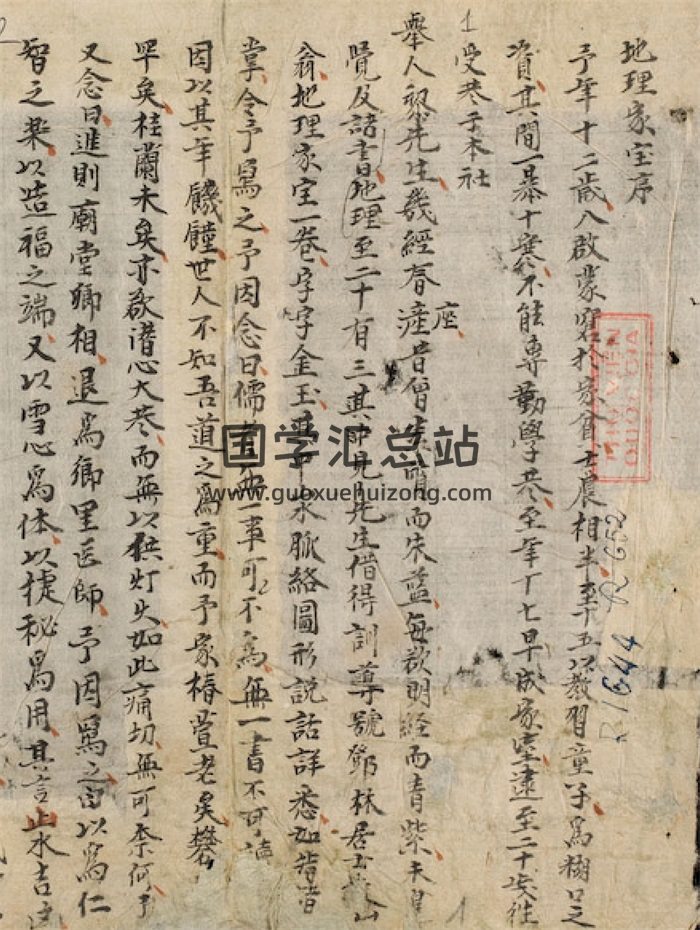 地理家宝序
予年十二歲入啟蒙窮於家貧士農相半至十五以教習童子為糊口之
資其間一暴十寒不能專勤學㳟至年十七早成家室逮至二十歲往
受㳟于本社
舉人黎先生幾經春
座
而朱藍每欲明經而青紫天
覺及諸書地理至二十有三其中見先生借得訓導號鄧林居士
翁地理家宝一卷字字金玉 水脈絡圖形説話詳悉如
掌令予寫之予因念曰儒者無一事可不為無一書不可讀
因以其年饑饉世人不知吾道之為重而予家椿萱老矣
罕矣桂蘭未矣亦欲潜心大㳟而無以供灯火如此痛切無可奈何予
又念曰進則廟堂卿相退為鄉里医師予因寫之 以為仁
智之楽以造福之端又以雪心為体以捷秘為用其言山水吉
国学汇总站
www.guoxuehuizong.com
R 1644
R 652
1
1
2